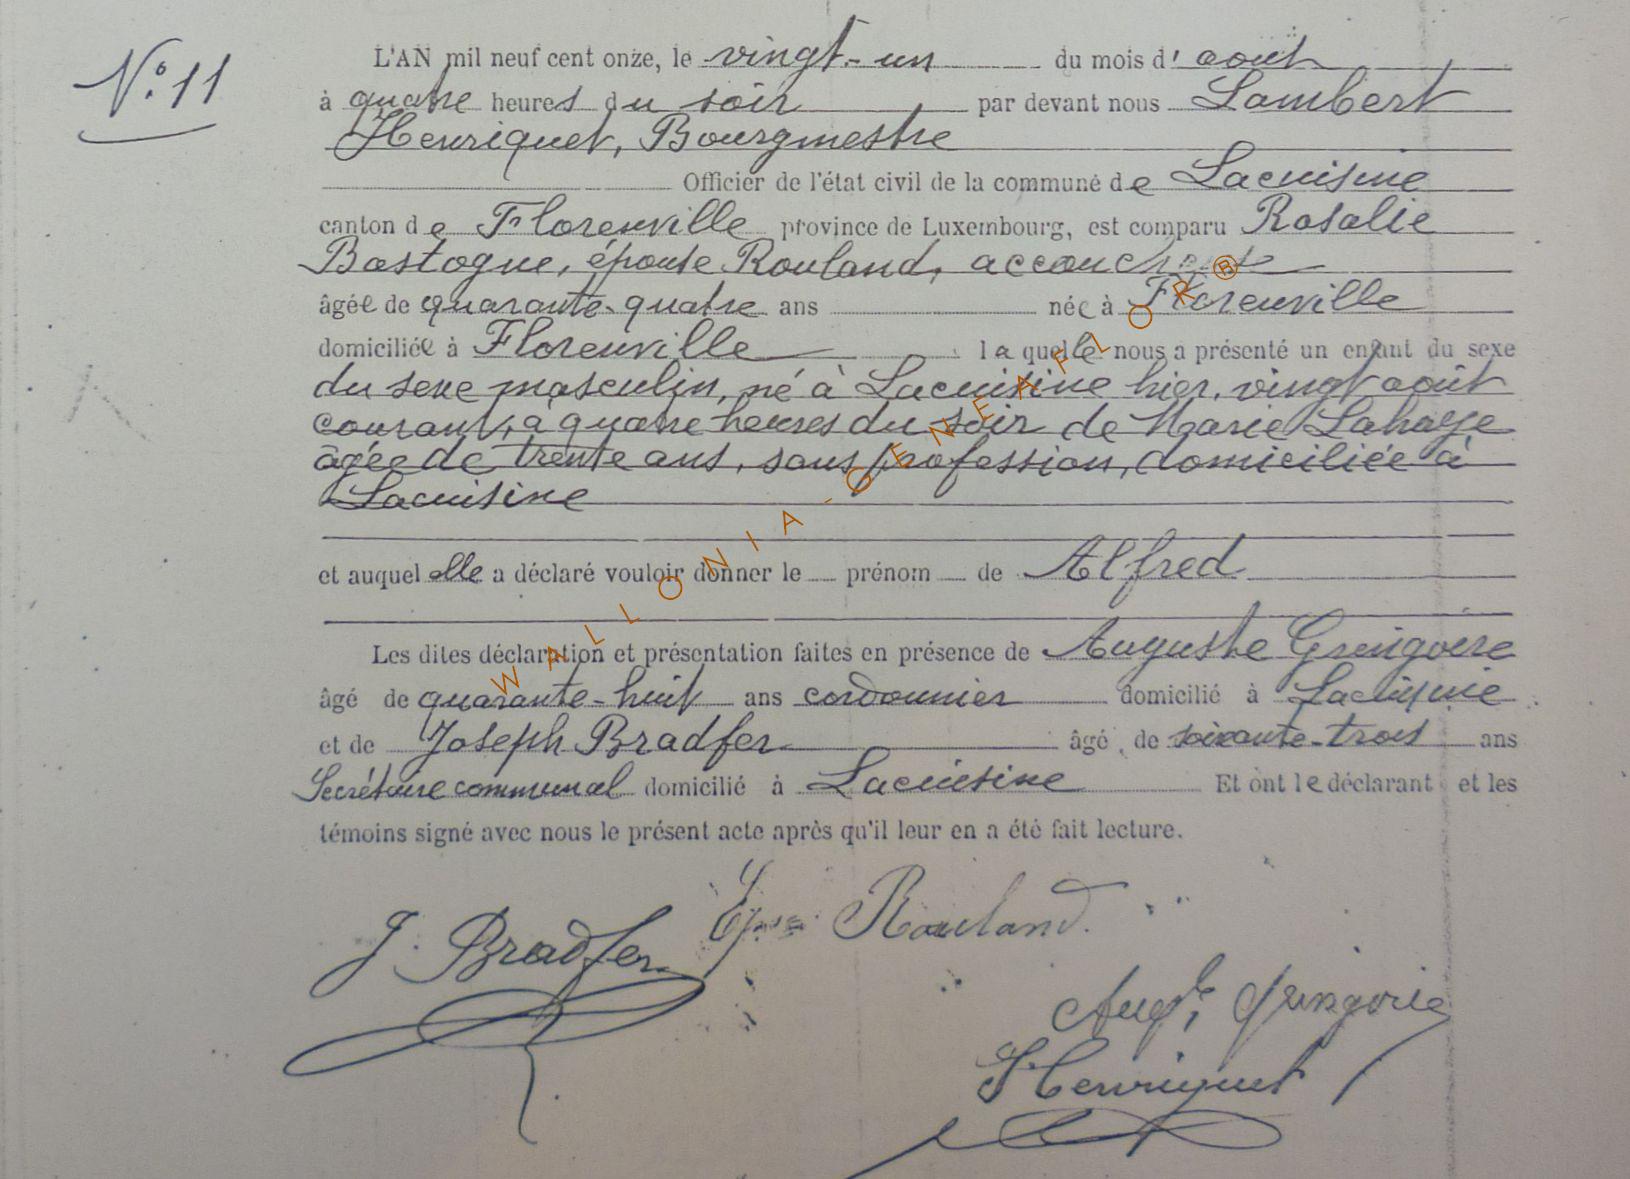 N° 11
L'AN mil neuf cent onze, le vingt-un du mois d'août
à quatre heures du soir par devant nous Lambert
Henriquet, Bourgmestre
Officier de l'état civil de la commune de Lacuisine
canton de Florenville province de Luxembourg, est comparu Rosalie
Bastogne, épouse Rouland, accoucheuse
âgée de quarante-quatre ans née à Florenville
domiciliée à Florenville laquelle nous a présenté un enfant du sexe
du sexe masculin, né à Lacuisine hier, vingt août
courant, à quatre heures du soir de Marie Lahaye
âgée de trente ans, sans profession, domiciliée à
Lacuisine
et auquel elle a déclaré vouloir donner le prénom de Alfred
Les dites déclaration et présentation faites en présence de Auguste Gringoire
âgé de quarante-huit ans cordonnier domicilié à Lacuisine
et de Joseph Bradfer âgé de soixante-trois ans
Secrétaire communal domicilié à Lacuisine Et ont le déclarant et les
témoins signé avec nous le présent acte après qu'il leur en a été fait lecture.
J. Bradfer Rouland
Augte Gringoire
Henriquet
WALLONIA-GENEAFLOR®